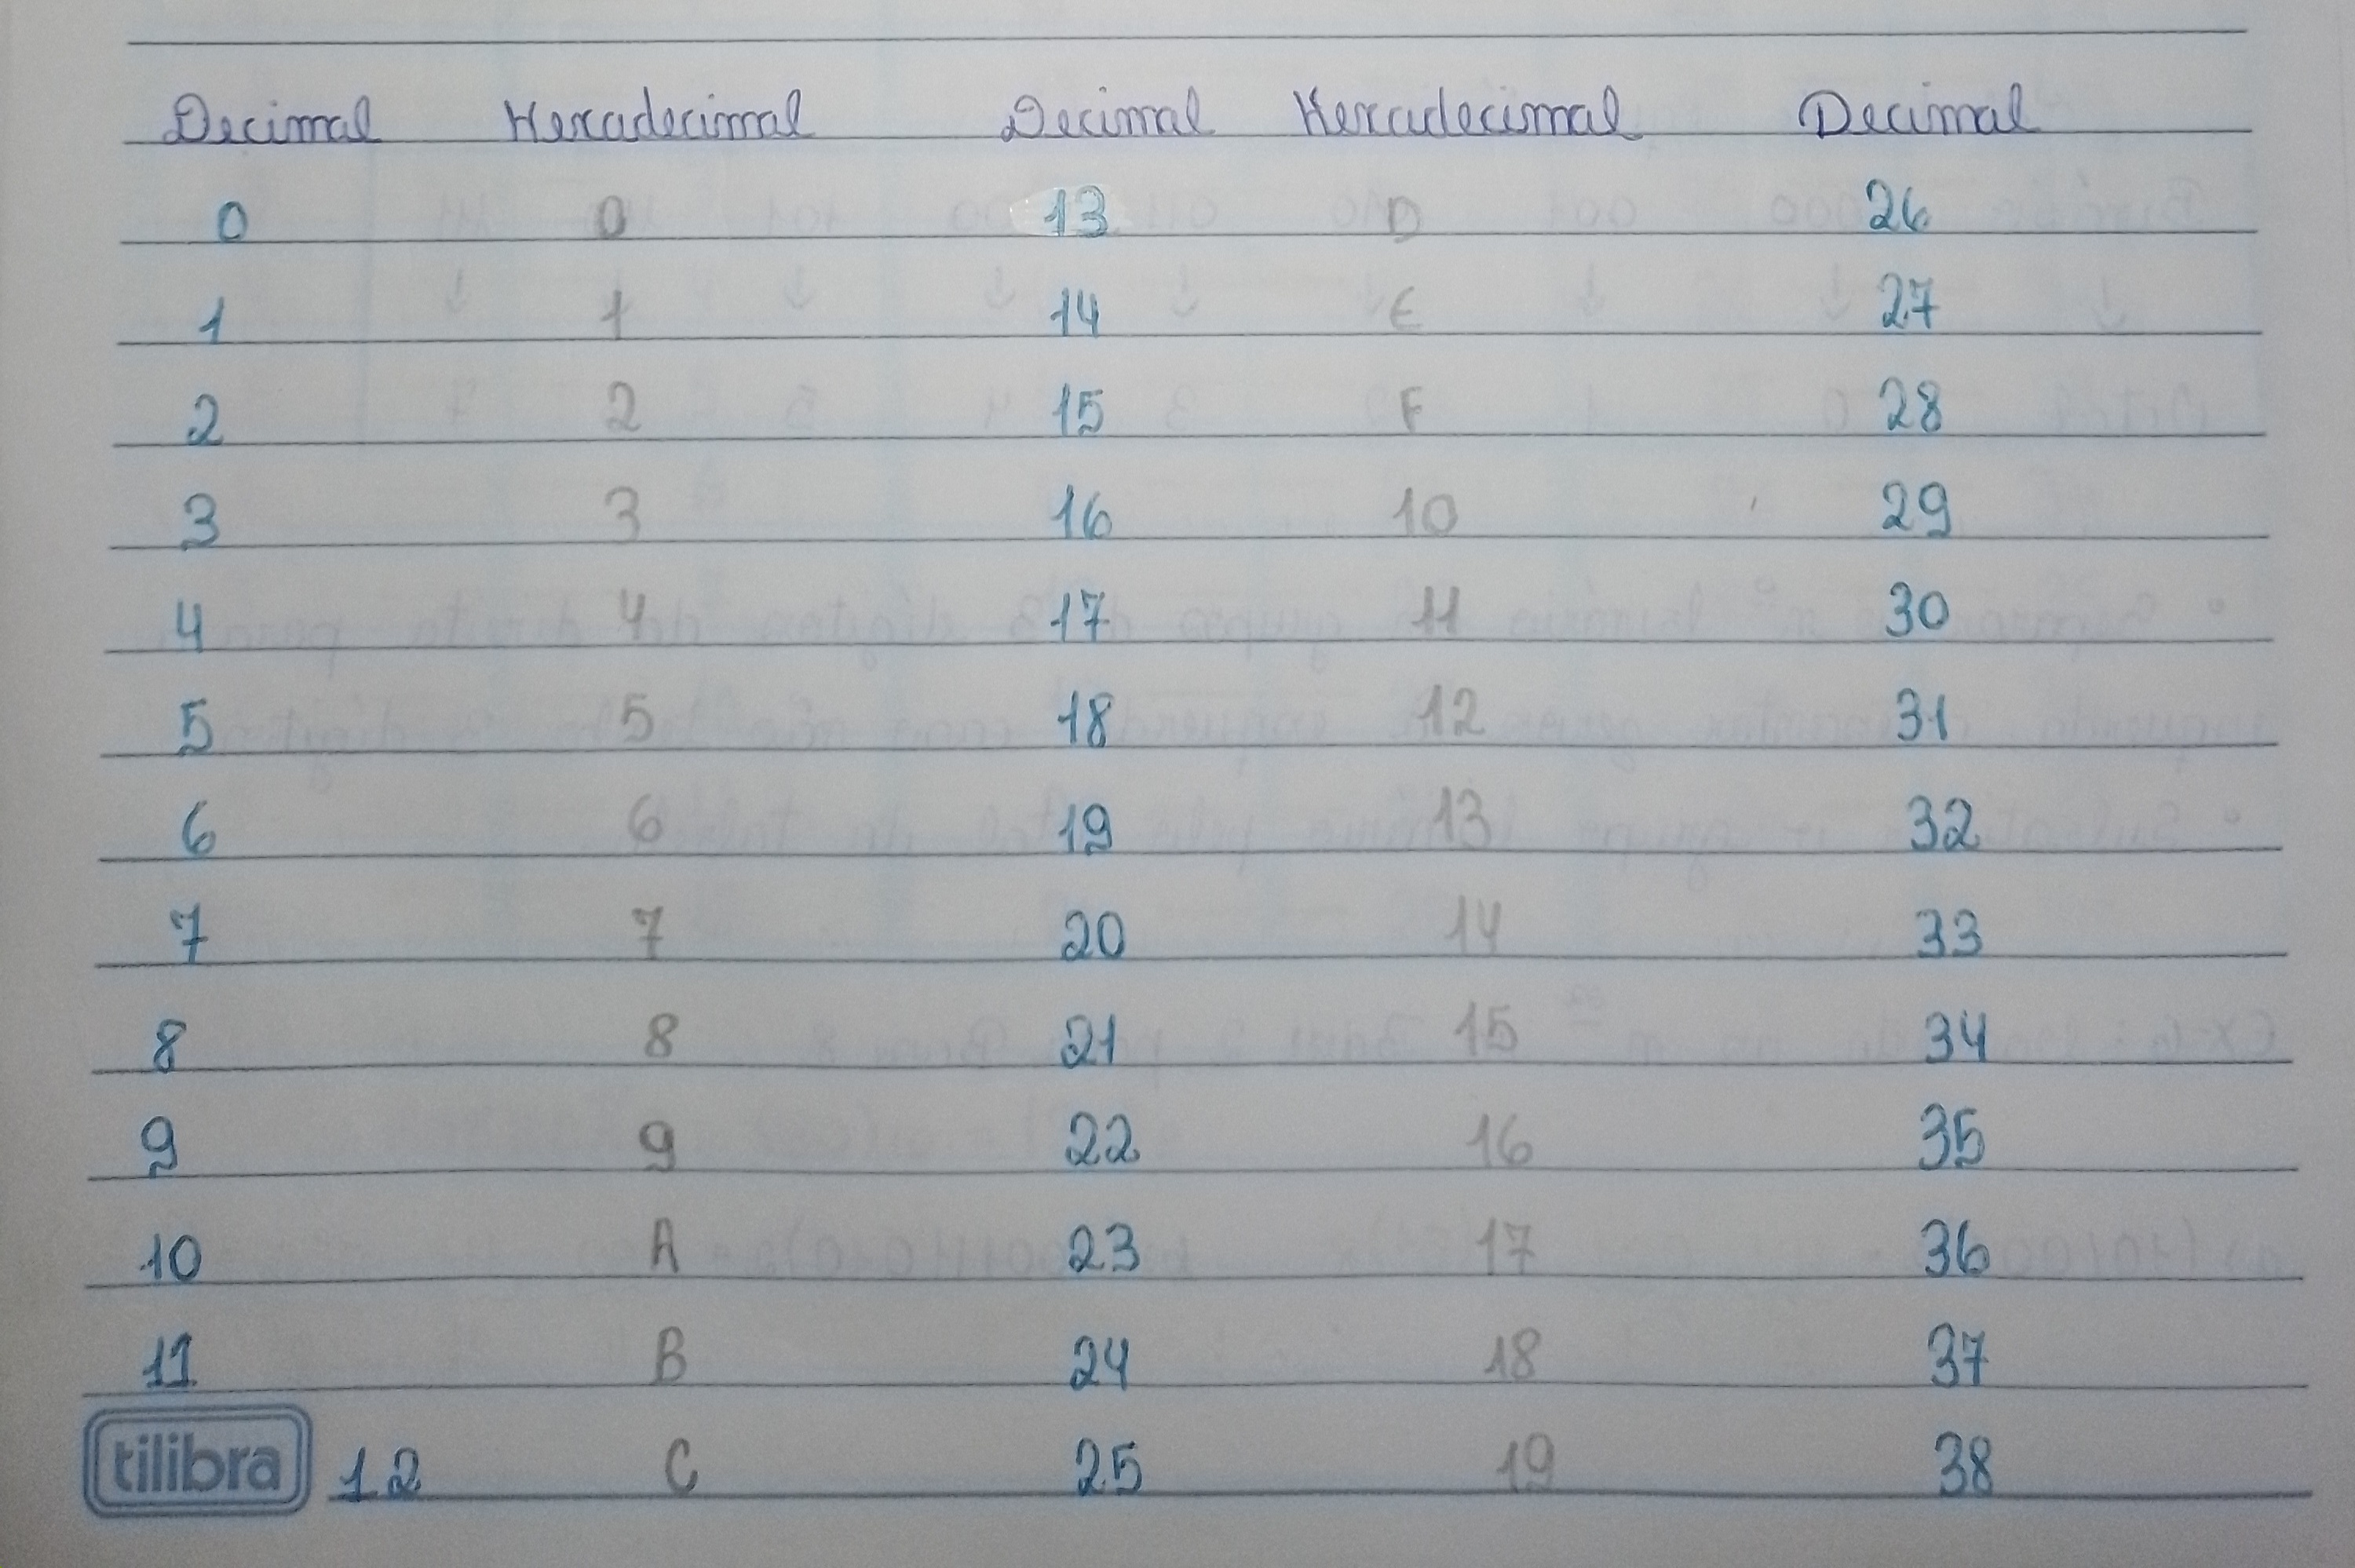 Decimal Hexadecimal Decimal Hexadecimal Decimal
0 0 13 D 26
1 1 14 E 27
2 2 15 F 28
3 3 16 10 29
4 4 17 11 30
5 5 18 12 31
6 6 19 13 32
7 7 20 14 33
8 8 21 15 34
9 9 22 16 35
10 A 23 17 36
11 B 24 18 37
tilibra 12 C 25 19 38